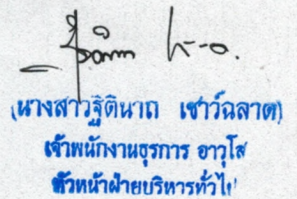 (นางสาวฐิตินาถ เชาว์ฉลาด)
เจ้าพนักงานธุรการ อาวุโส
หัวหน้าฝ่ายบริหารทั่วไป